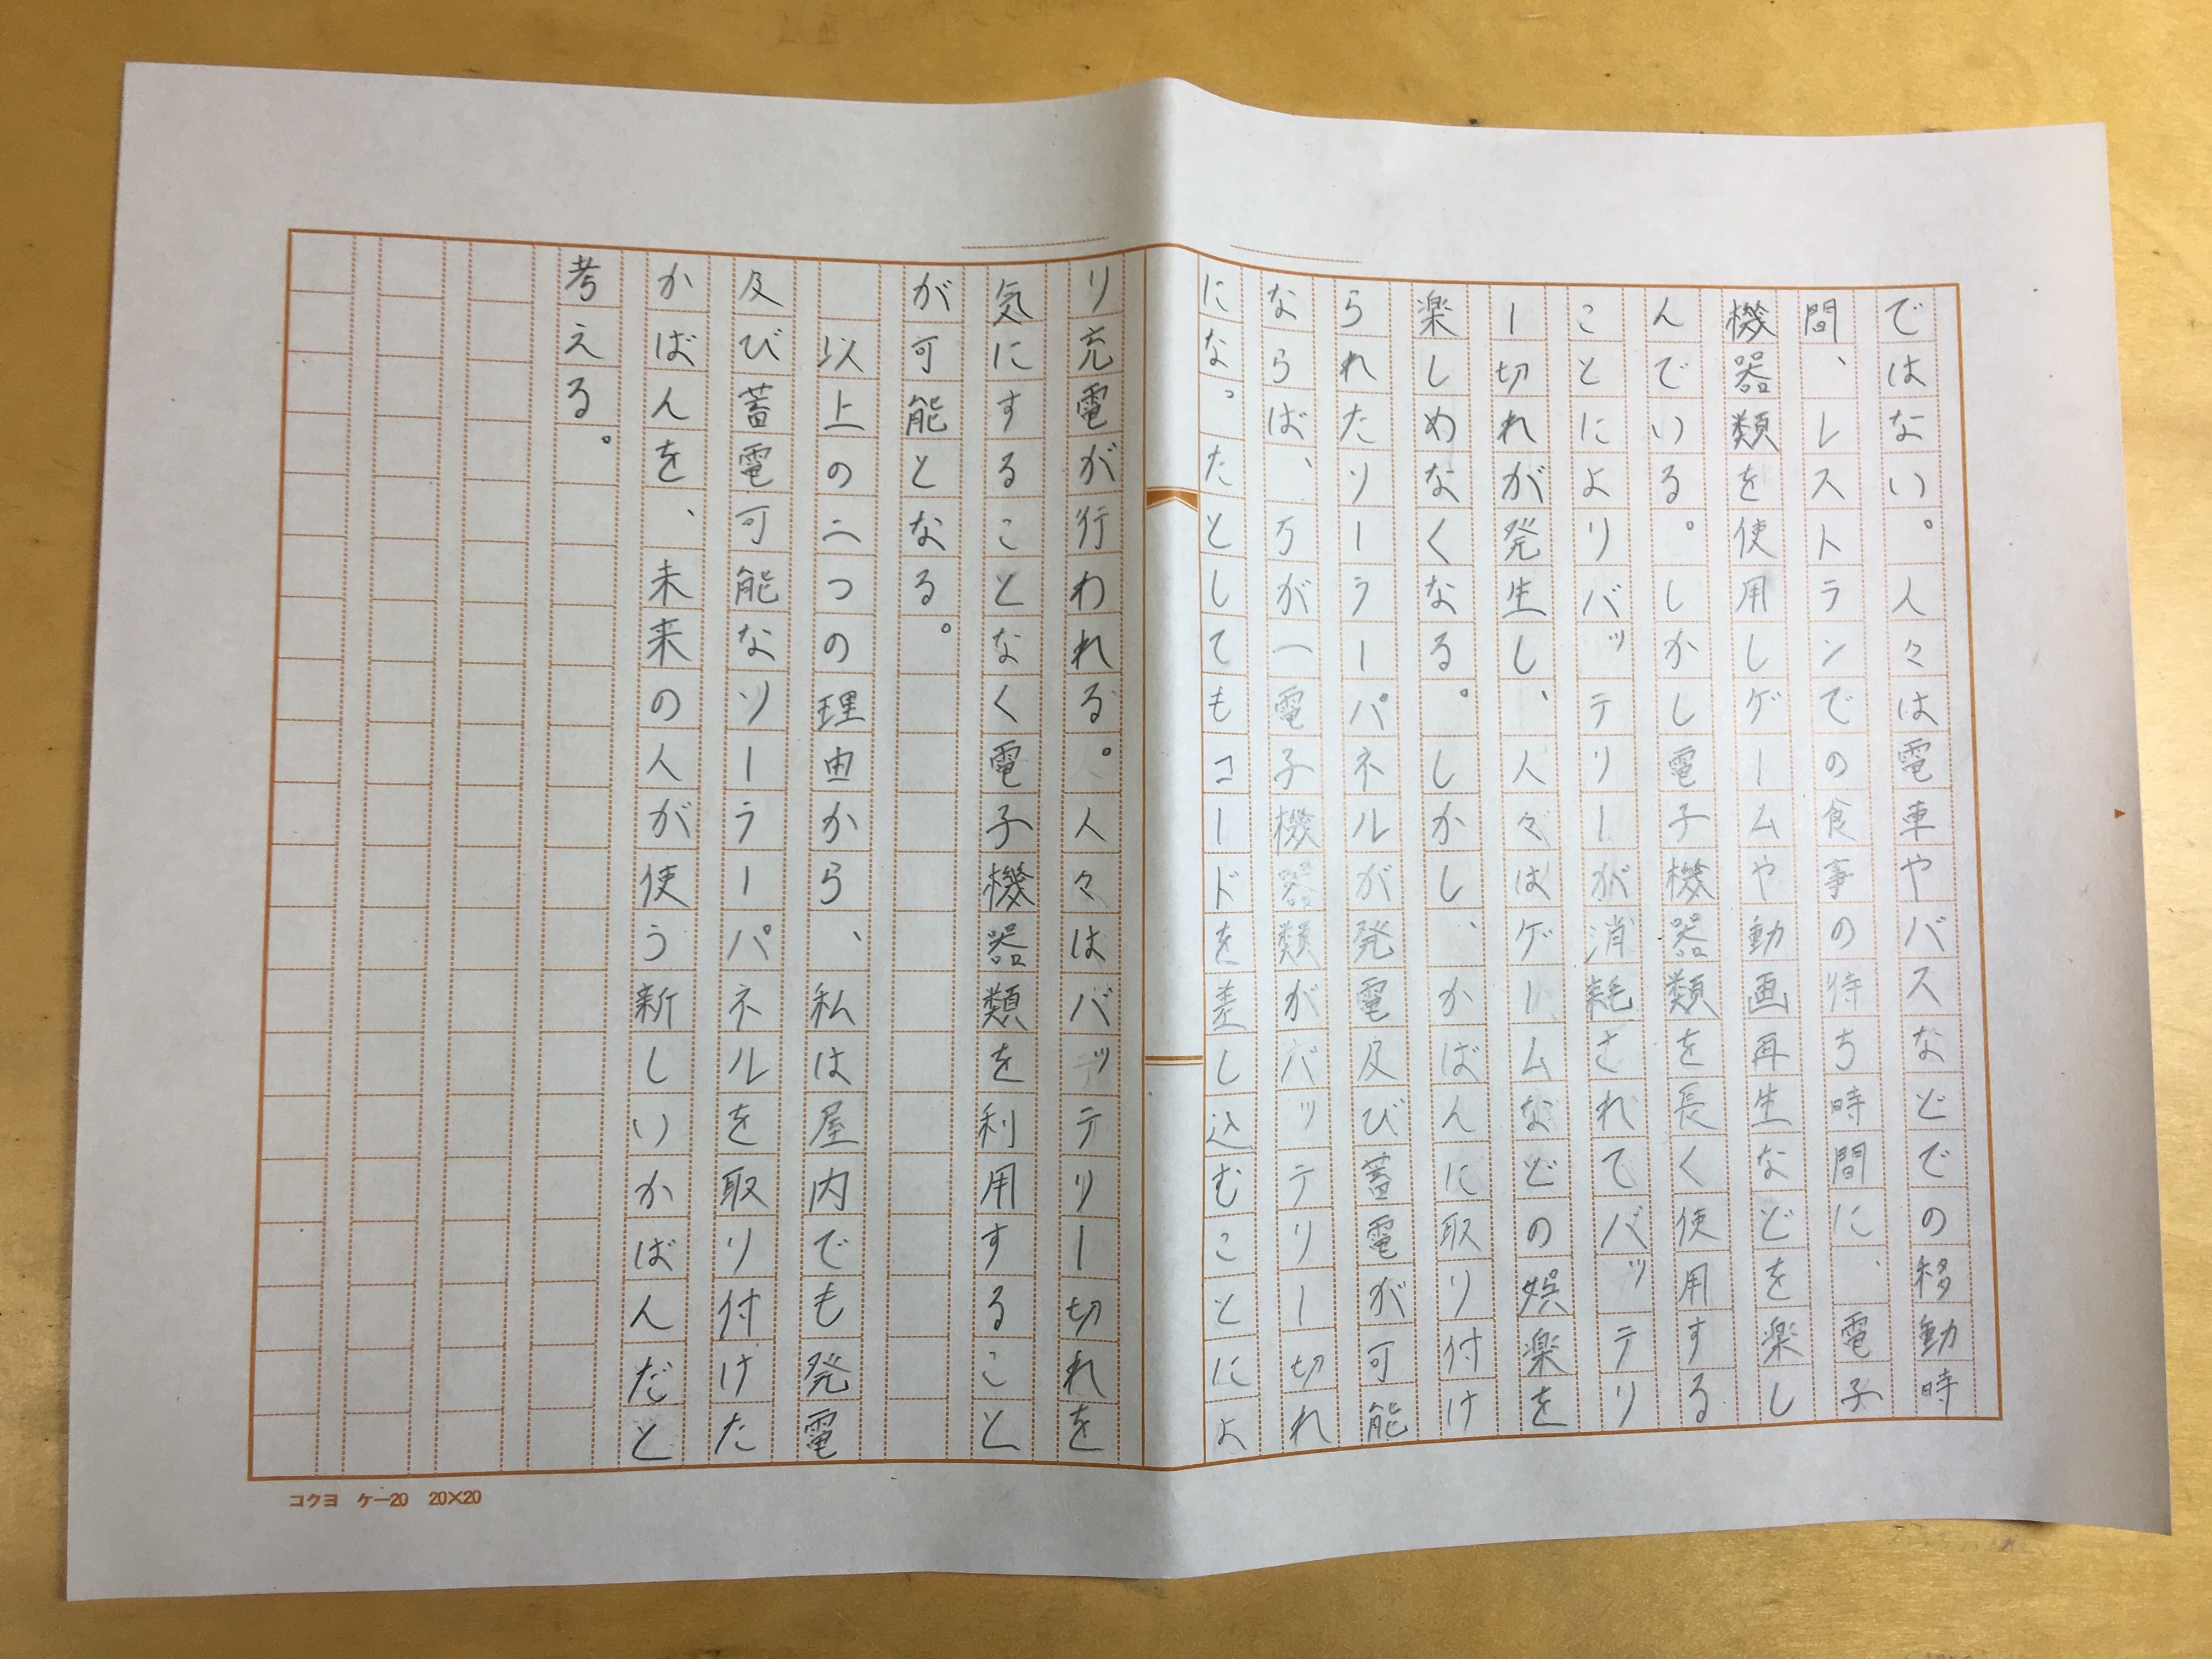 ではない。人々は電車やバスなどでの移動時
間、レストランでの食事の待ち時間に、電子
機器類を使用しゲームや動画再生などを楽し
んでいる。しかし電子機器類を長く使用する
ことによりバッテリーが消耗されてバッテリ
ー切れが発生し、人々はゲームなどの娯楽を
楽しめなくなる。しかし、かばんに取り付け
られたソーラーパネルが発電及び蓄電が可能
ならば、万が一電子機器類がバッテリー切れ
になったとしてもコードを差し込むことによ
り充電が行われる。人々はバッテリー切れを
気にすることなく電子機器類を利用すること
が可能となる。
以上の二つの理由から、私は屋内でも発電
及び蓄電可能なソーラーパネルを取り付けた
かばんを、未来の人が使う新しいかばんだと
考える。
コクヨ ケー20 20×20